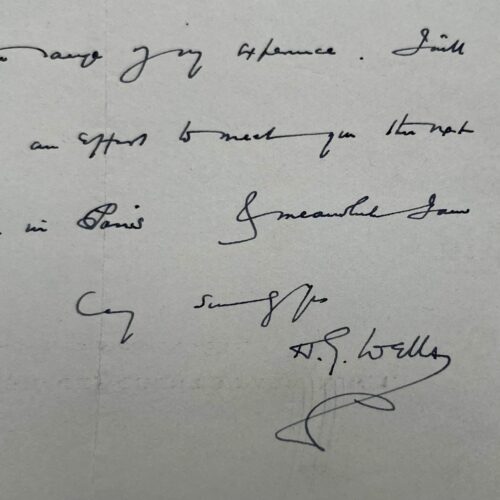 range of my experience. I will
an effort to meet you the next
in Paris & meanwhile I am
Very sincerely yrs
H. G. Wells